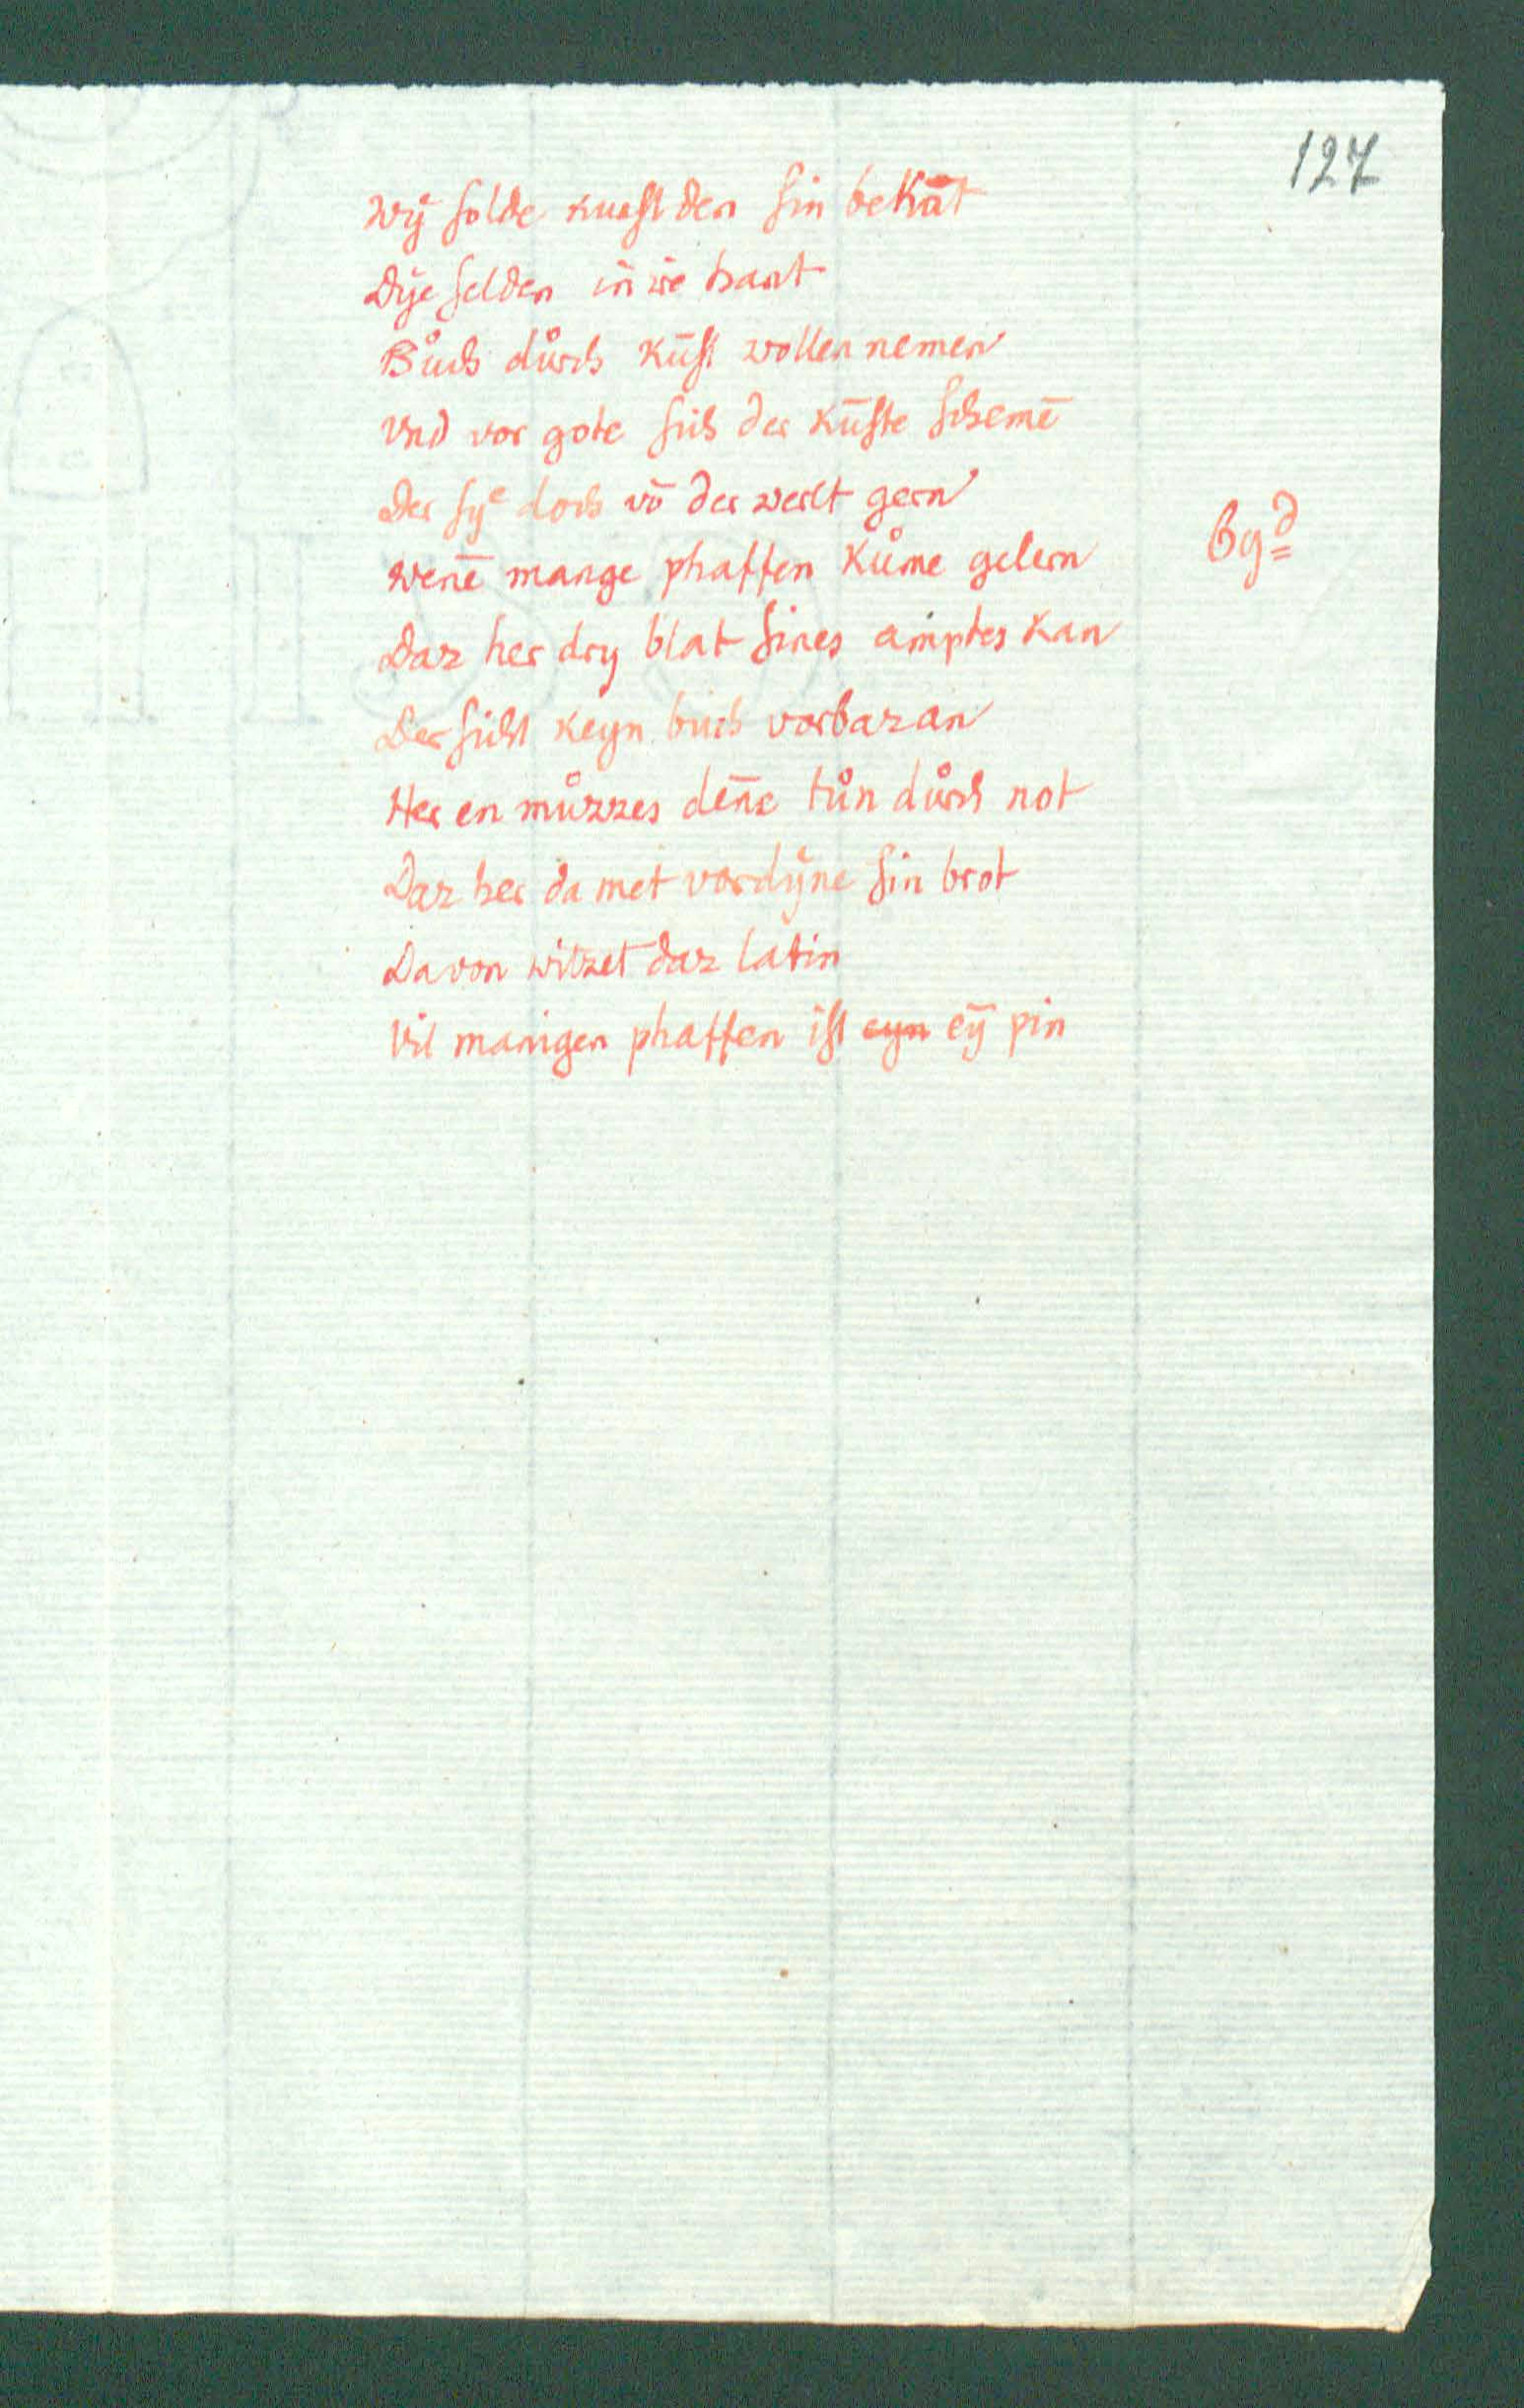 127
Wÿ ſolde kunſt den ſin bekāt
Dÿe ſelden in ire hant
Bůch důrch kūſt wollen nemen
Vnd vor gote ſich der kūſte ſchemē
Der ſyͤ doch vō der werlt gern
Wenē mange phaffen kůme gelern
Daz her dry blat ſines amptes kan
Der ſicht keyn buch vorbaz an
Her en můzzes dēne tůn důrch not
Daz her da met vordÿne ſin brot
Davon witzet daz latin
Vil manigen phaffen iſt eyn eȳ pin